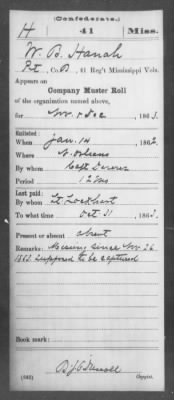 (Confederate.)
H 41 Miss.
W. B. Hanah
Pt, Co. B, 41 Reg't Mississippi Vols.
Appears on
Company Muster Roll
of the organization named above,
for Nov & Dec, 1863.
Enlisted:
When Jan. 14, 1862.
Where N. Orleans
By whom Capt
Period 12 Mos
Last paid:
By whom Lt. Lockhart
To what time Oct 31, 1863.
Present or absent absent
Remarks: Missing since Nov 26
1863 supposed to be captured
Book mark:
(642) Copyist.